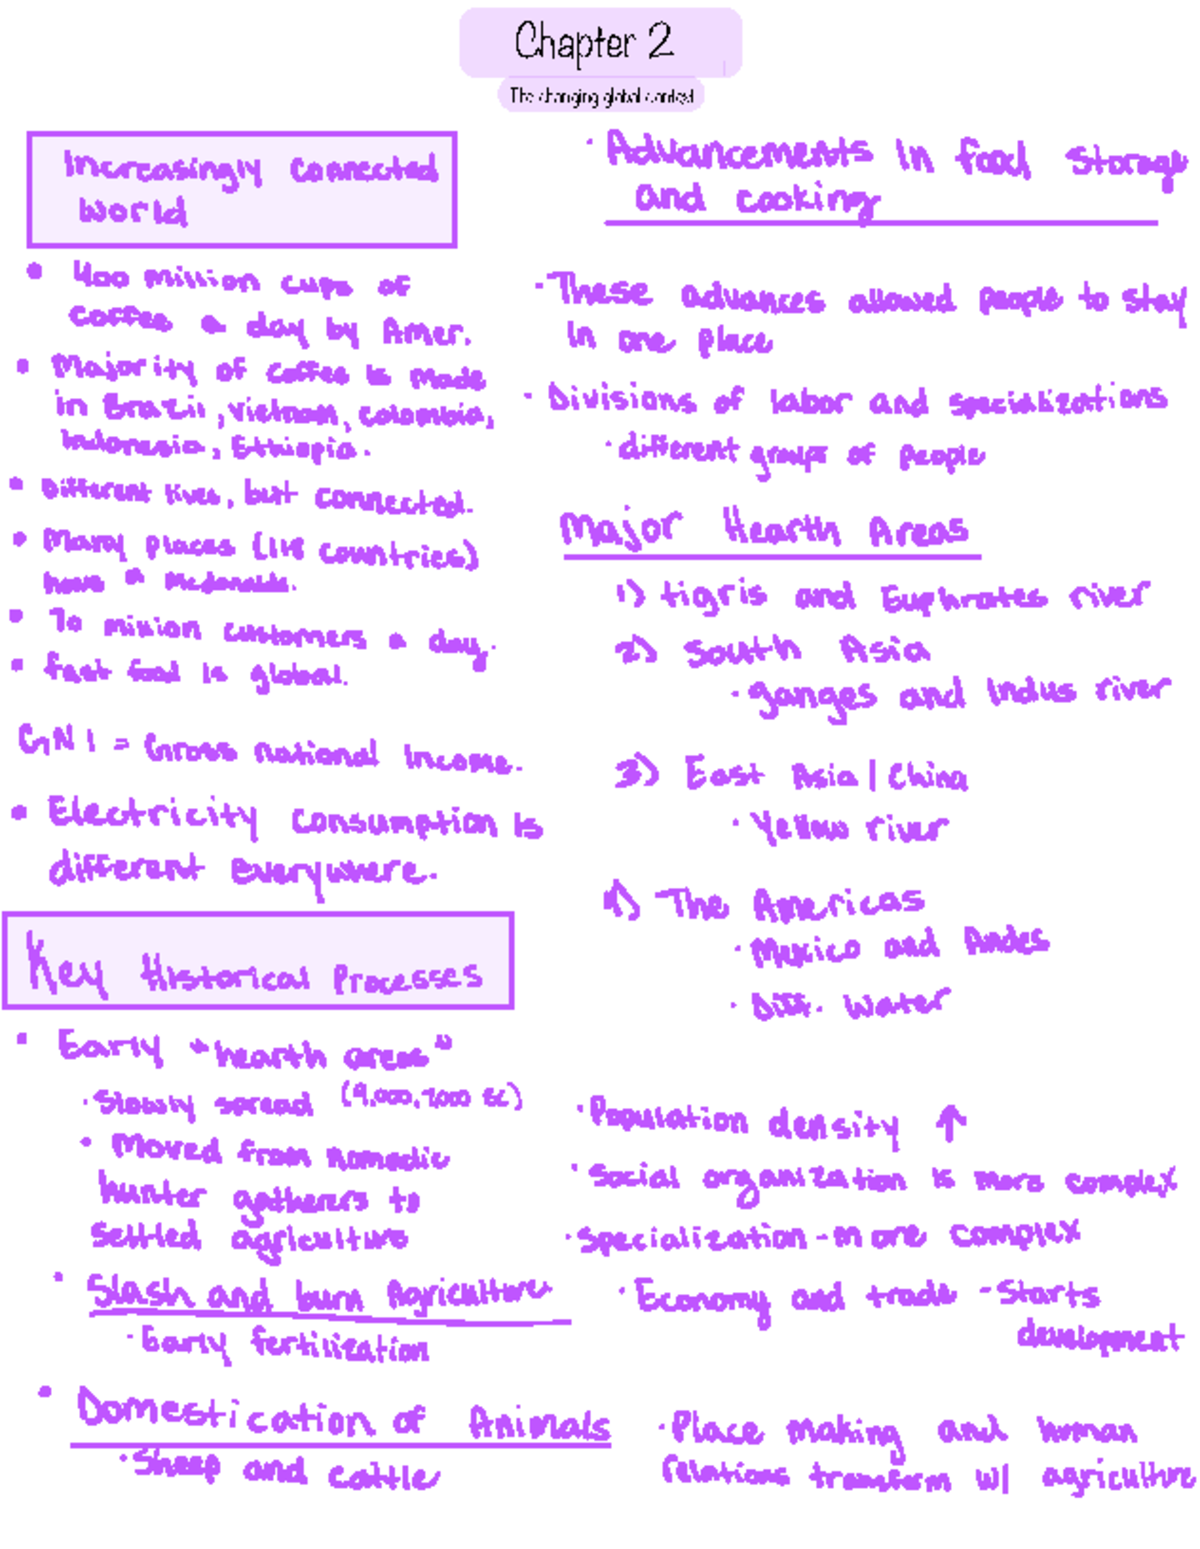 Chapter 2
The changing global context
Increasingly connected
World
• 400 million cups of
coffee a day by Amer.
• Majority of coffee is made
in Brazil, Vietnam, Colombia,
Indonesia, Ethiopia.
• Different lives, but connected.
• Many places (118 countries)
have a McDonalds.
• 70 million customers a day.
• fast food is global.
GNI = Gross national Income.
• Electricity consumption is
different everywhere.
Key Historical Processes
• Early "hearth areas"
• Slowly spread (9,000, 7,000 BC)
• Moved from nomadic
hunter gatherers to
settled agriculture
• Slash and burn Agriculture
• Early fertilization
• Domestication of Animals
• Sheep and cattle
• Advancements in food storage
and cooking
• These advances allowed people to stay
in one place
• Divisions of labor and specializations
• different groups of people
Major Hearth Areas
1) tigris and Euphrates river
2) South Asia
• ganges and Indus river
3) East Asia / China
• Yellow river
4) The Americas
• Mexico and Andes
• Diff. Water
• Population density ↑
• Social organization is more complex
• specialization - more complex
• Economy and trade - starts
development
• Place making and human
relations transform w/ agriculture